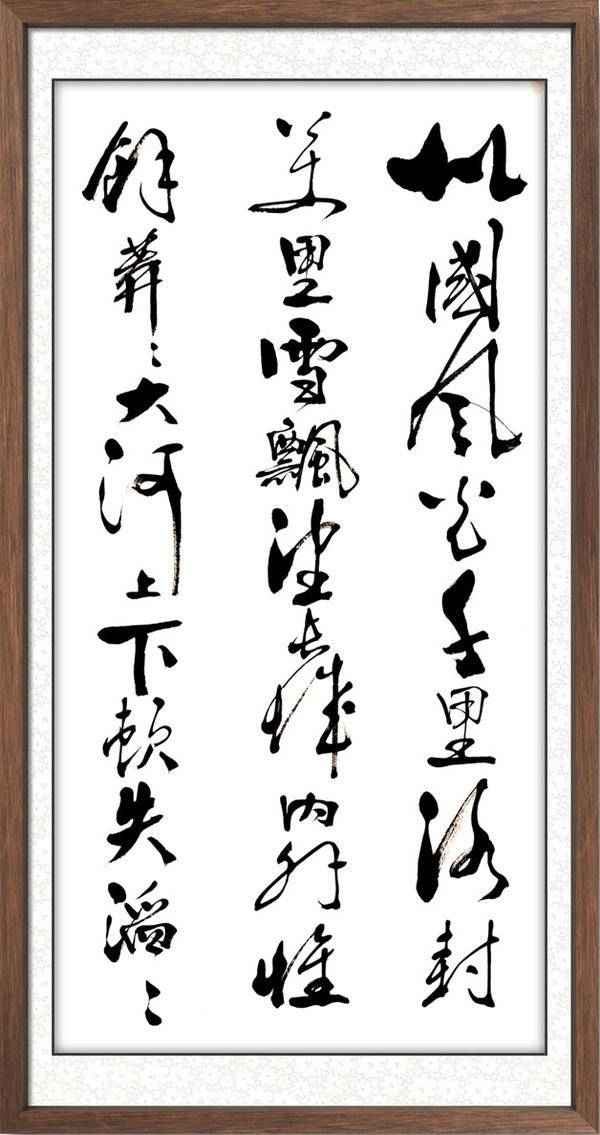 北國風光千里冰封
萬里雪飄望長城內外惟
餘莽〻大河上下頓失滔〻